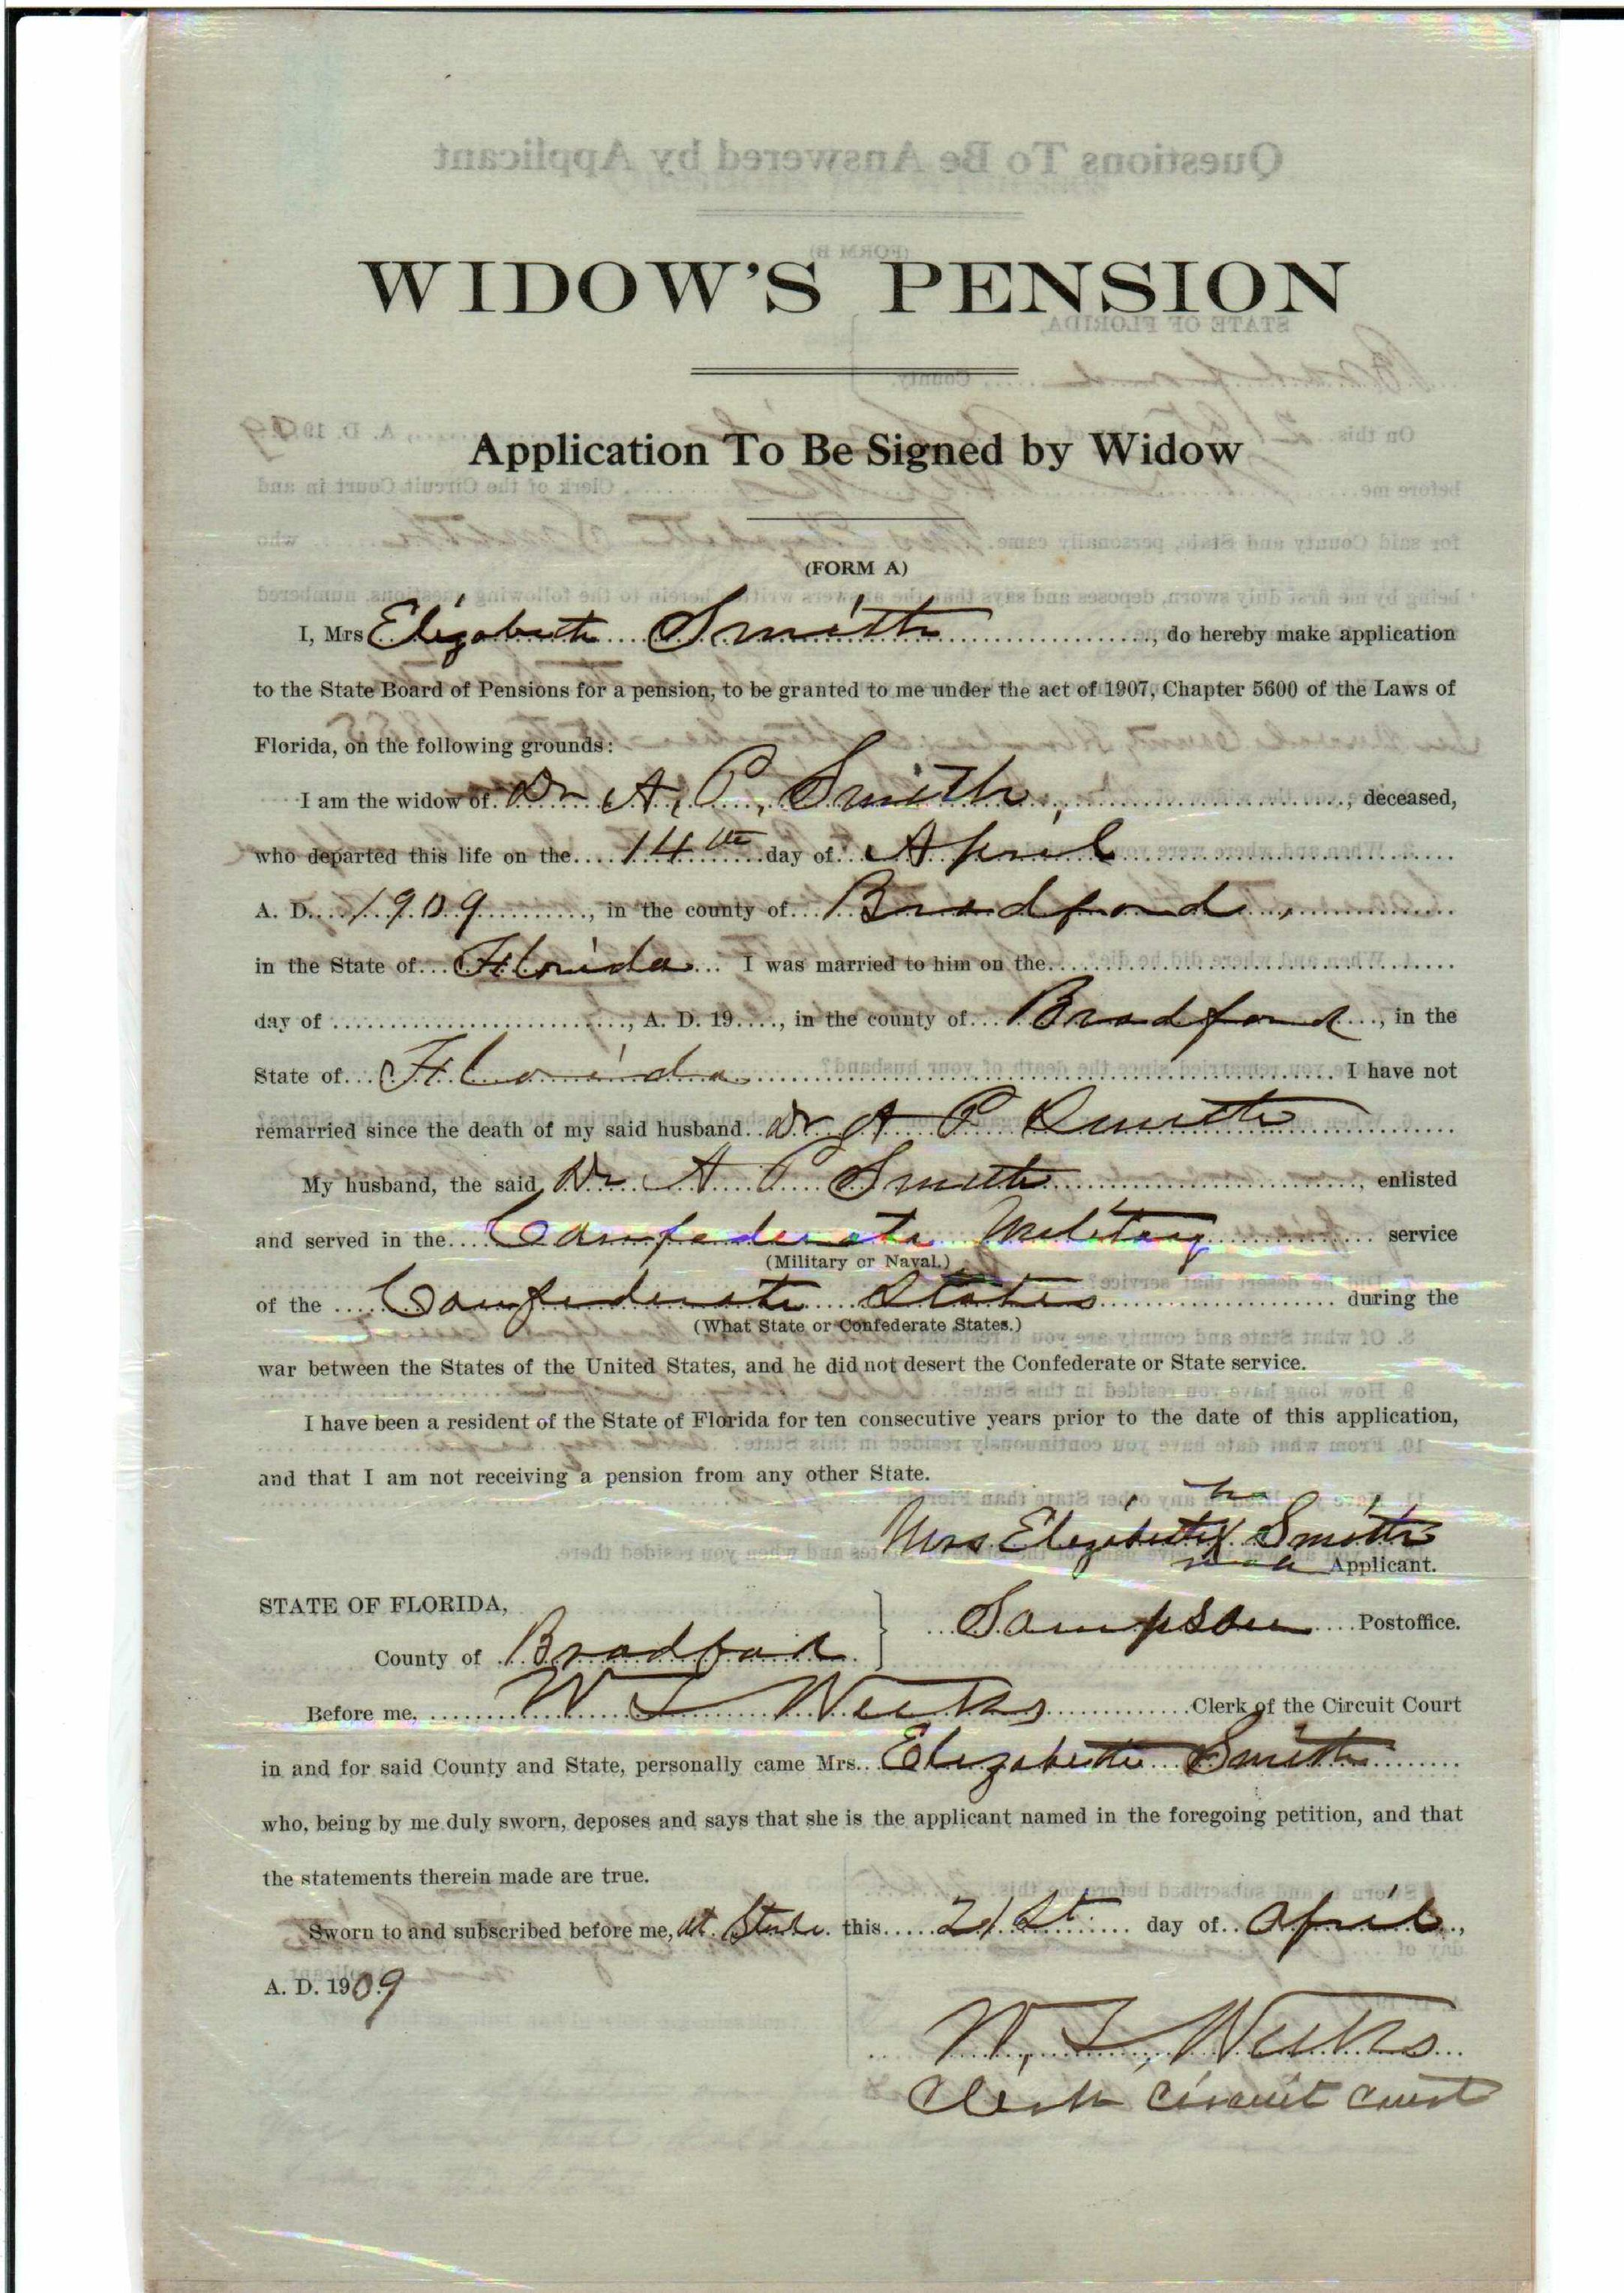 WIDOW'S PENSION
Application To Be Signed by Widow
(FORM A)
I, Mrs Elizabeth Smith, do hereby make application
to the State Board of Pensions for a pension, to be granted to me under the act of 1907, Chapter 5600 of the Laws of
Florida, on the following grounds:
I am the widow of Dr A. P. Smith, deceased,
who departed this life on the 14th day of April
A. D. 1909, in the county of Bradford,
in the State of Florida I was married to him on the
day of , A. D. 19 , in the county of Bradford, in the
State of Florida I have not
remarried since the death of my said husband Dr A P Smith
My husband, the said Dr A P Smith, enlisted
and served in the Confederate Military service
(Military or Naval.)
of the Confederate States during the
(What State or Confederate States.)
war between the States of the United States, and he did not desert the Confederate or State service.
I have been a resident of the State of Florida for ten consecutive years prior to the date of this application,
and that I am not receiving a pension from any other State.
Mrs Elizabeth X Smith
Applicant.
STATE OF FLORIDA,
Sampson Postoffice.
County of Bradford
Before me, W T Weeks Clerk of the Circuit Court
in and for said County and State, personally came Mrs. Elizabeth Smith
who, being by me duly sworn, deposes and says that she is the applicant named in the foregoing petition, and that
the statements therein made are true.
Sworn to and subscribed before me, at Starke this 21st day of April,
A. D. 1909
W. T. Weeks
Clerk Circuit Court